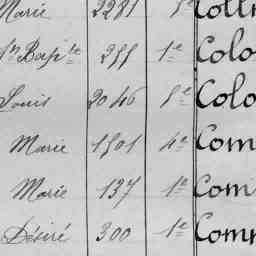 Marie 2281 5e Coll
Jn Bapte 255 1e Colo
Louis 2046 5e Colo
Marie 1501 4e Com
Marie 137 1e Com
Désiré 300 1e Com